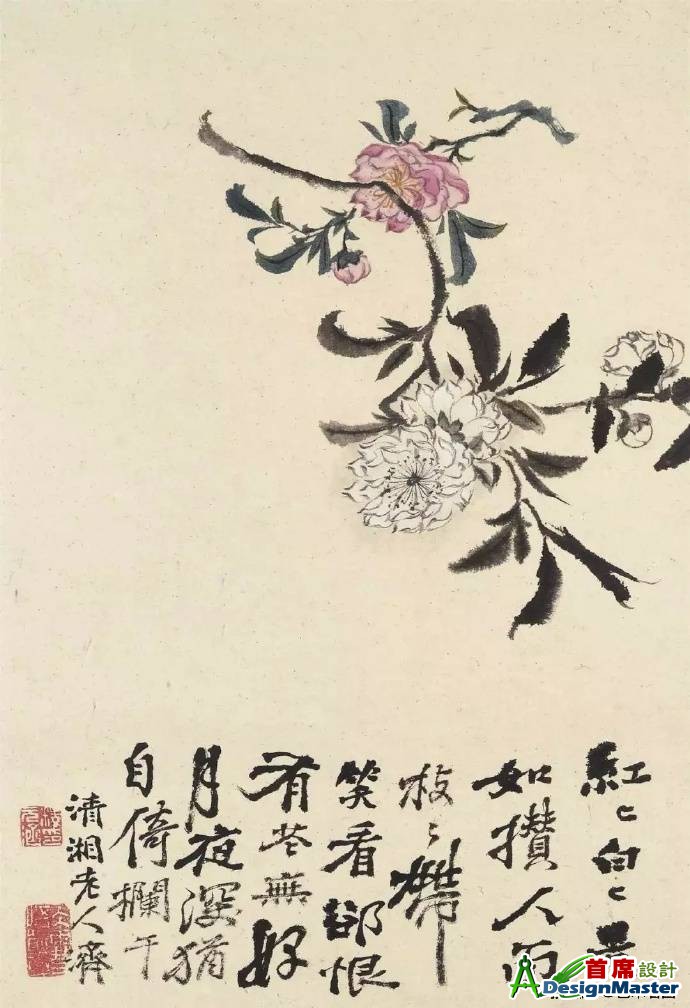 紅〻白〻
如攢人面
枝〻帶
笑看卻恨
有花無好
月夜深猶
自倚欄干
清湘老人濟
首席設計
DesignMaster